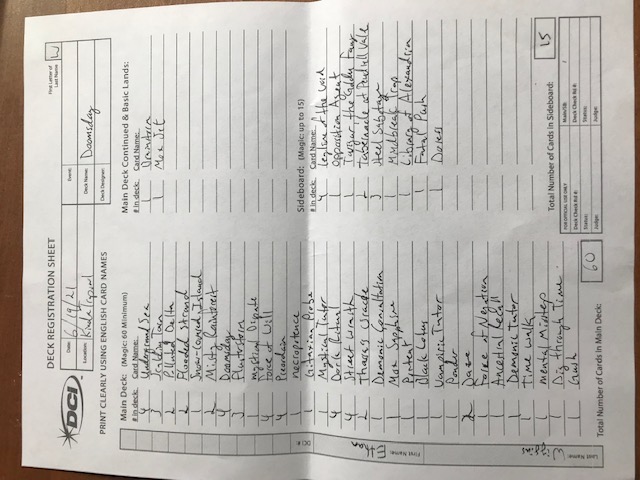 DECK REGISTRATION SHEET
First Letter of
Last Name W
DCI
Date: 6/19/21
Event:
Location:
Deck Name: Doomsday
Deck Designer:
PRINT CLEARLY USING ENGLISH CARD NAMES
Main Deck: (Magic: 60 Minimum)
# in deck: Card Name:
4 Underground Sea
3 Scalding Tarn
2 Polluted Delta
2 Flooded Strand
1 Snow-Covered Island
2 Misty Rainforest
4 Doomsday
3 Flusterstorm
1 mystical Dispute
4 Force of Will
4 Preordain
1 necropotence
1 Gitaxian Probe
1 Mystical Tutor
4 Dark Ritual
4 Street Wraith
2 Thassa's Oracle
1 Demonic Consultation
1 Mox Sapphire
1
1 Black Lotus
1 Vampiric Tutor
1 Ponder
2 Daze
1 Force of Negation
1 Ancestral Recall
1 Demonic Tutor
1 Time Walk
1 mental Misstep
1 Dig through Time
1 Gush
Total Number of Cards in Main Deck: 60
Main Deck Continued & Basic Lands:
# in deck: Card Name:
1 Brainstorm
1 Mox Jet
Sideboard: (Magic: up to 15)
# in deck: Card Name:
4 leyline of the void
1 Opposition Agent
1
2 Tabernacle at Pendrell Vale
3 Steel Sabotage
1 Mindbreak Trap
1 Library of Alexandria
1 Fatal Push
1
Total Number of Cards in Sideboard: 15
FOR OFFICIAL USE ONLY
Main/SB: /
Deck Check Rd #:
Deck Check Rd #:
Status:
Status:
Judge:
Judge:
DCI #:
First Name: Ethan
Last Name: Wiggins